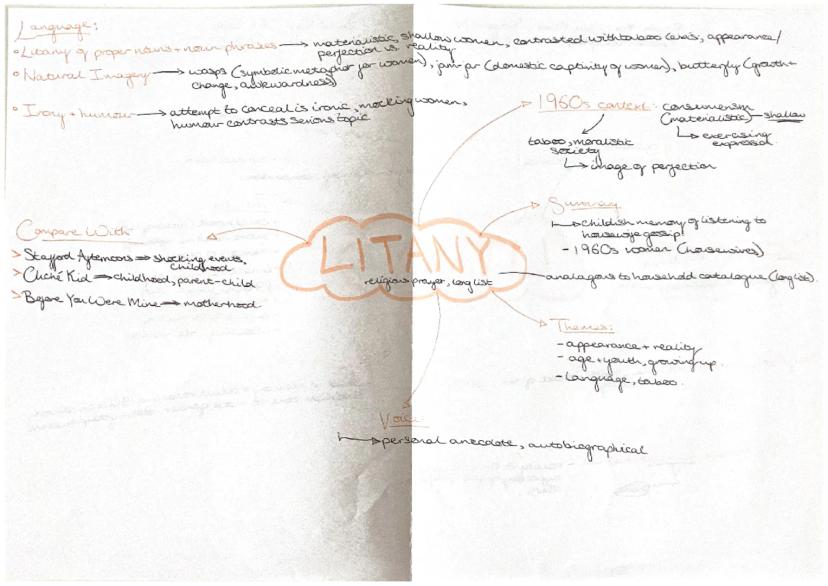 Language:
• Litany of proper nouns + noun phrases → materialistic, shallow women, contrasted with taboo lexis, appearance/
perfection vs. reality.
• Natural Imagery → wasps (symbolic metaphor for women), jam jar (domestic captivity of women), butterfly (growth +
change, awkwardness)
• Irony + humour → attempt to conceal is ironic, mocking women,
humour contrasts serious topic
1960s context: consumerism
(materialistic) – shallow
↳
taboo, moralistic
society
↳ image of perfection
Summary
↳ childish memory of listening to
housewife gossip!
- 1960s women (housewives)
Compare With
> Stafford Afternoons → shocking events,
childhood
> Cliché Kid → childhood, parent-child
> Before You Were Mine → motherhood
LITANY
religious prayer, long list
analogous to household catalogue (long list).
Themes:
- appearance + reality
- age + youth, growing up.
- language, taboo.
Voice
↳ personal anecdote, autobiographical